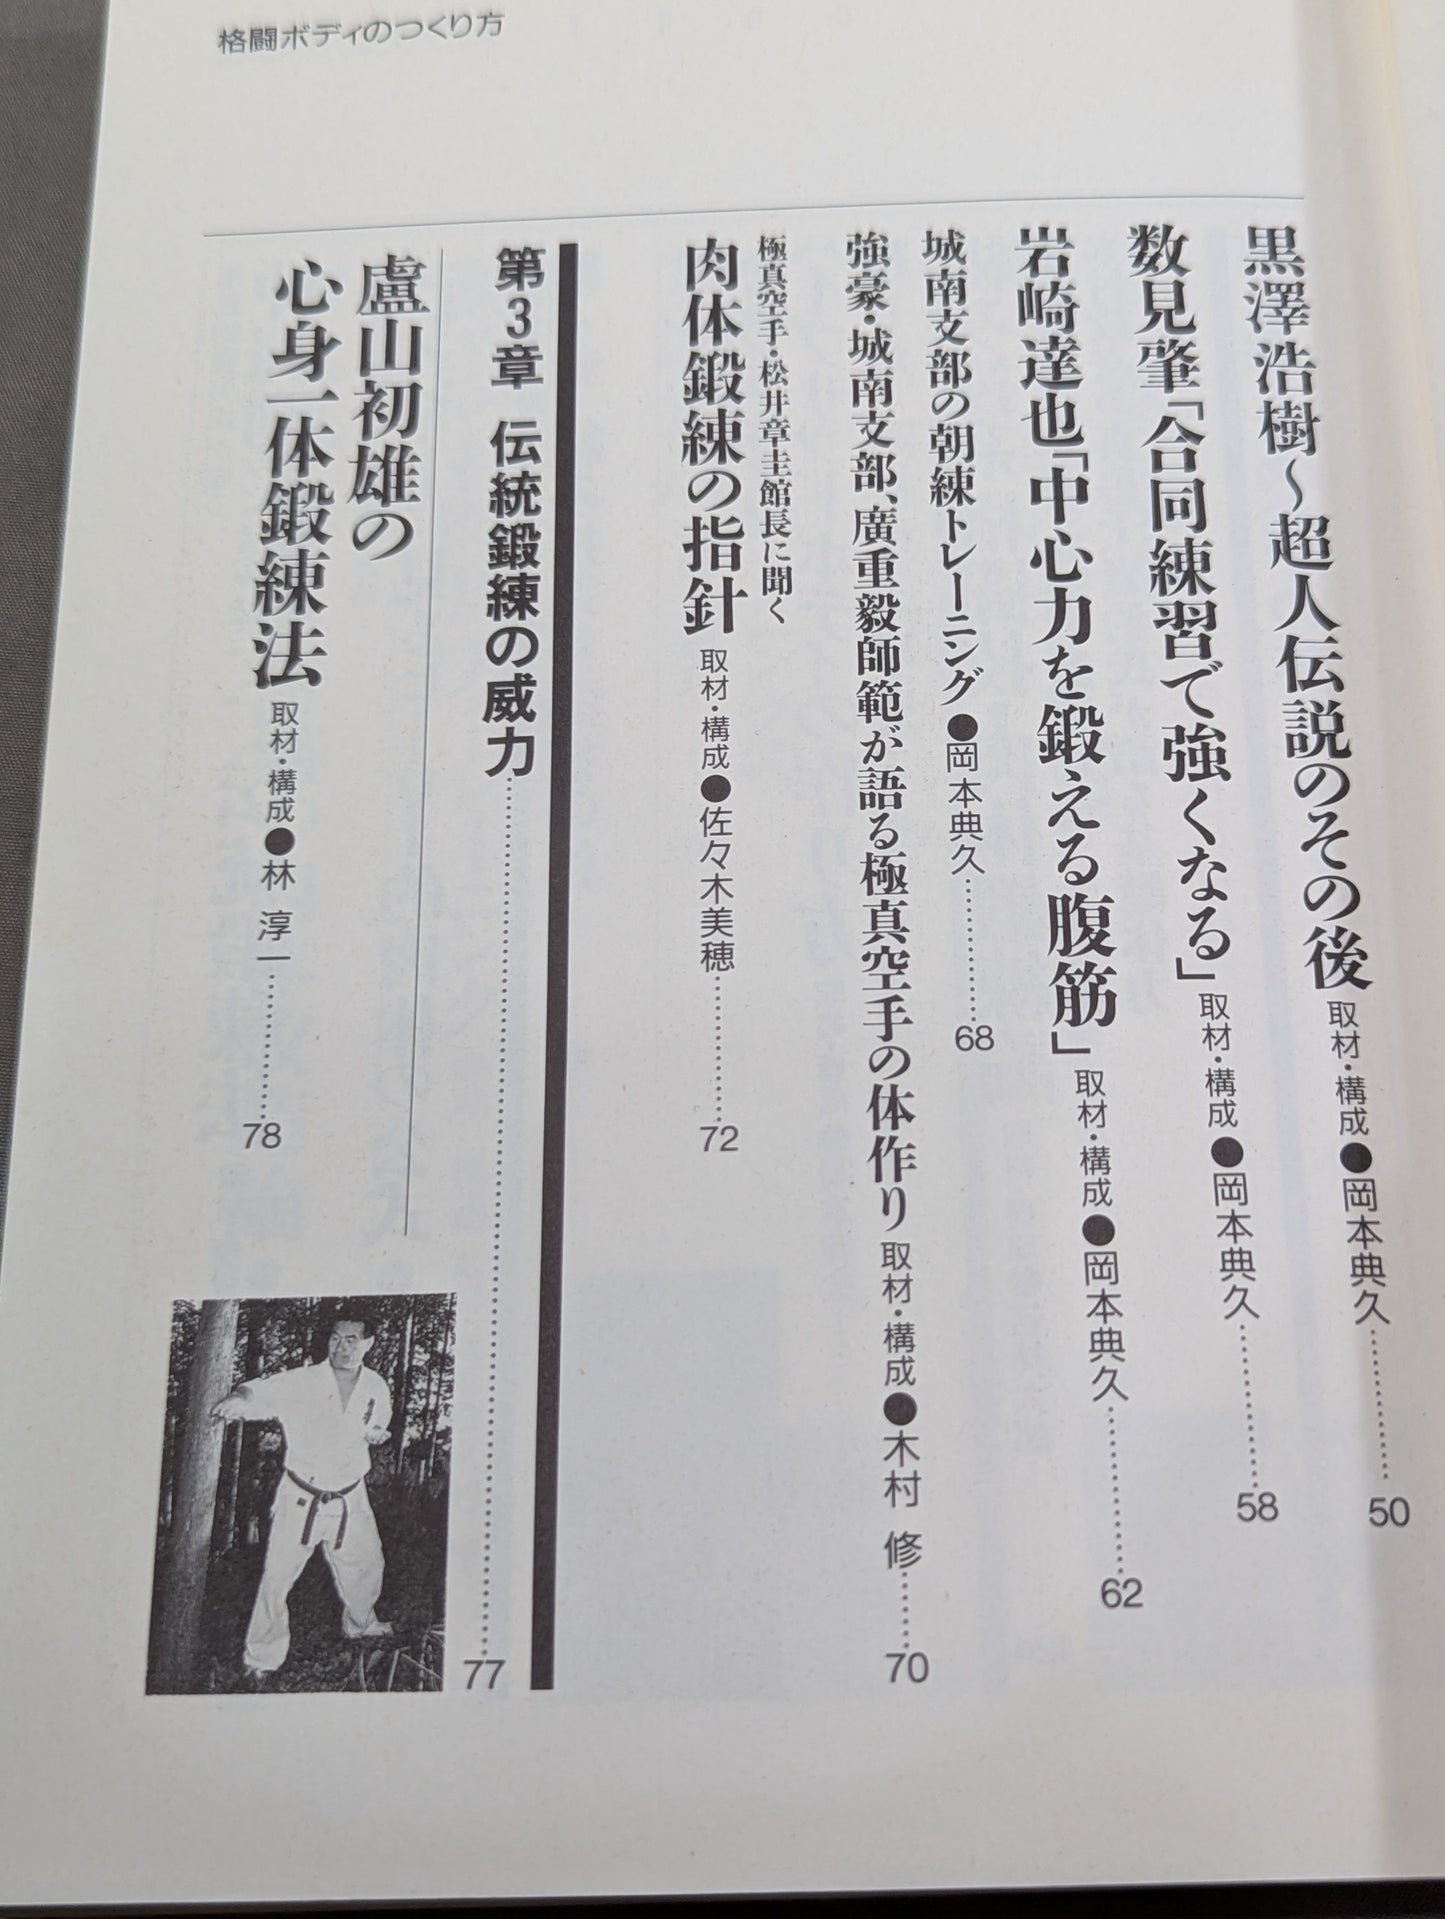 格闘ボディのつくり方
黒澤浩樹〜超人伝説のその後 取材・構成●岡本典久…………50
数見肇「合同練習で強くなる」取材・構成●岡本典久…………58
岩崎達也「中心力を鍛える腹筋」取材・構成●岡本典久…………62
城南支部の朝練トレーニング●岡本典久…………68
強豪・城南支部、廣重毅師範が語る極真空手の体作り 取材・構成●木村 修…………70
極真空手・松井章圭館長に聞く
肉体鍛練の指針 取材・構成●佐々木美穂…………72
第3章 伝統鍛練の威力…………77
盧山初雄の
心身一体鍛練法 取材・構成●林 淳一…………78